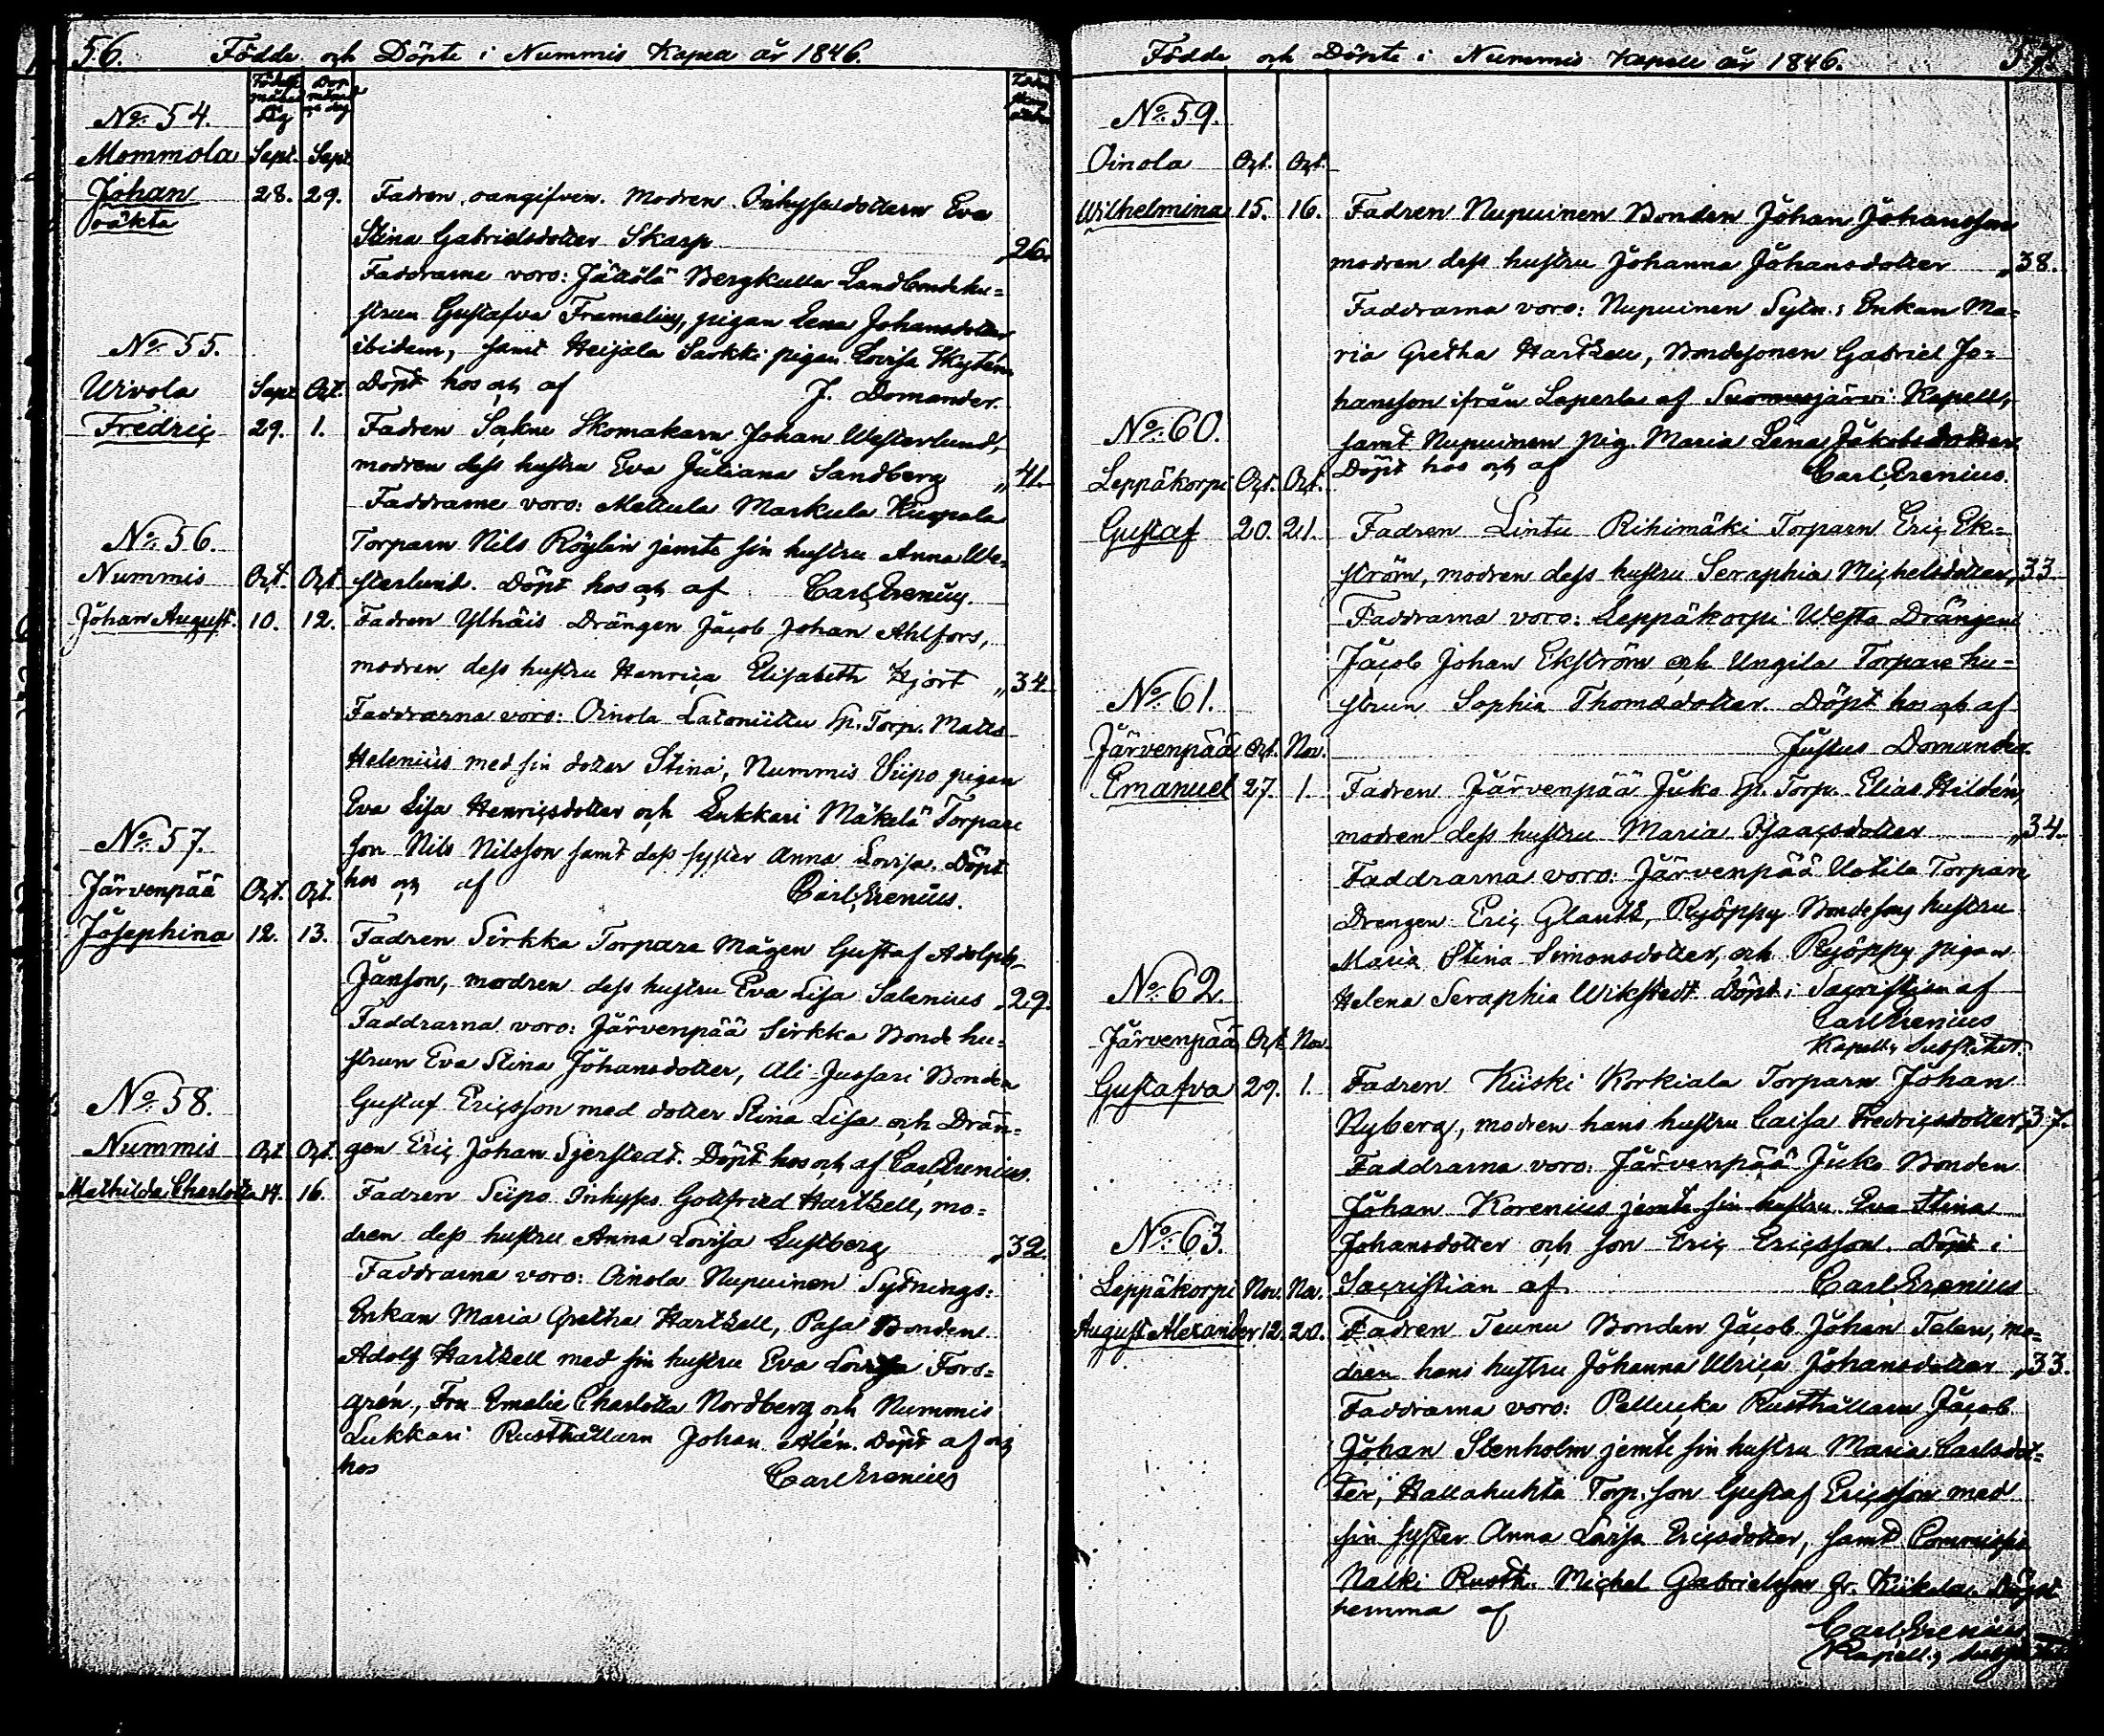 56. Födde och Döpte i Nummis Kapell år 1846.
No. 54.
Mommola Sept. Sept.
Johan 28. 29. Fadren oangifven. Modren Inhyses dottern Eva
oäkta
Stina Gabrielsdotter Skarp 26.
Faddrarne voro: Jättölä Bergkulla Landbondehu=
strun Gustafva Framelius, pigan Lena Johansdotter
No. 55.
ibidem, samt Heijala Sarkki pigan Lovisa Skytén.
Uivola Sept. Oct. Döpt hos och af J. Domander.
Fredric 29. 1. Fadren Sakne Skomakarn Johan Westerlund,
modren dess hustru Eva Juliana Sandberg „41.
Faddrarne voro: Mettula Markula Kuopala
No. 56.
Torparn Nils Röylin jemte sin hustru Anna We=
Nummis Oct. Oct. sterlund. Döpt hos och af Carl Erenius.
Johan August. 10. 12. Fadren Ylhäis Drängen Jacob Johan Ahlfors,
modren dess hustru Henrica Elisabeth Hjort „34.
Faddrarna voro: Oinola Latoniittu Sp. Torp. Matts
Helenius med sin dotter Stina, Nummis Viipo pigan
Eva Lisa Henricsdotter och Lukkari Mäkelä Torpare
No. 57.
son Nils Nilsson samt dess syster Anna Lovisa. Döpt
Järvenpää Oct. Oct. hos och af Carl Erenius.
Josephina 12. 13. Fadren Sirkka Torpare Mågen Gustaf Adolph
Janson, modren dess hustru Eva Lisa Salenius „29.
Faddrarna voro: Järvenpää Sirkka Bonde hu=
strun Eva Stina Johansdotter, Ali Jussari Bonden
No. 58.
Gustaf Ericsson med dotter Stina Lisa och Drän=
Nummis Oct. Oct. gen Eric Johan Sjerstedt. Döpt hos och af Carl Erenius.
Mathilda Charlotta 14. 16. Fadren Siipo Inhyses Gottfried Hartzell, mo=
dren dess hustru Anna Lovisa Lustberg „32.
Faddrarna voro: Oinola Nupuinen Sytnings:
Enkan Maria Gretha Hartzell, Pasa Bonden
Adolf Hartzell med sin hustru Eva Lovisa Fors=
grén, Fru Emelie Charlotta Nordberg och Nummis
Lukkari Rusthållarn Johan Alén. Döpt af och
hos Carl Erenius
Födde och Döpte i Nummis Kapell år 1846. 57.
No. 59.
Oinola Oct. Oct.
Wilhelmina 15. 16. Fadren Nupuinen Bonden Johan Johansson
modren dess hustru Johanna Johansdotter „38.
Faddrarna voro: Nupuinen Sytn.: Enkan Ma=
ria Gretha Hartzell, Bondesonen Gabriel Jo=
hansson ifrån Laperla af Suomusjärvi Kapell,
No. 60.
samt Nupuinen pig. Maria Lena Jakobsdotter.
Leppäkorpi Oct. Oct. Döpt hos och af Carl Erenius.
Gustaf 20. 21. Fadren Lintu Rihimäki Torparn Eric Ek=
ström, modren dess hustru Seraphia Michelsdotter, 33.
Faddrarna voro: Leppäkorpi Westa Drängen
Jacob Johan Ekström och Ungila Torpare hu=
No. 61.
strun Sophia Thomasdotter. Döpt hos och af
Järvenpää Oct. Nov. Justus Domander.
Emanuel 27. 1. Fadren Järvenpää Juko Sp. Torp. Elias Hildén,
modren dess hustru Maria Isaacsdotter „34.
Faddrarna voro: Järvenpää Uotila Torpare
Drengen Eric Glantz, Ryöppy Bondesons hustru
Maria Stina Simonsdotter, och Ryöppy pigan
No. 62.
Helena Seraphia Wikstedt. Döpt i Sacristian af
Carl Erenius
Järvenpää Oct. Nov. Kapell. Substitut.
Gustafva 29. 1. Fadren Kiiski Korkiala Torparn Johan
Nyberg, modren hans hustru Caisa Fredricsdotter, 37.
Faddrarna voro: Järvenpää Juko Bonden
Johan Korenius jemte sin hustru Eva Stina
No. 63.
Johansdotter och son Eric Ericsson. Döpt i
Leppäkorpi Nov. Nov. Sacristian af Carl Erenius
August Alexander 12. 20. Fadren Teunu Bonden Jacob Johan Talen, mo=
dren hans hustru Johanna Ulrica Johansdotter „33.
Faddrarna voro: Pellucka Rusthållarn Jacob
Johan Stenholm jemte sin hustru Maria Carlsdot=
ter, Hallahuhta Torp. son Gustaf Ericsson med
sin syster Anna Lovisa Ericsdotter, samt
Nalki Rusth. Michel Gabrielsson fr. Kiikala. Döpt
hemma af
Carl Erenius
Kapell.